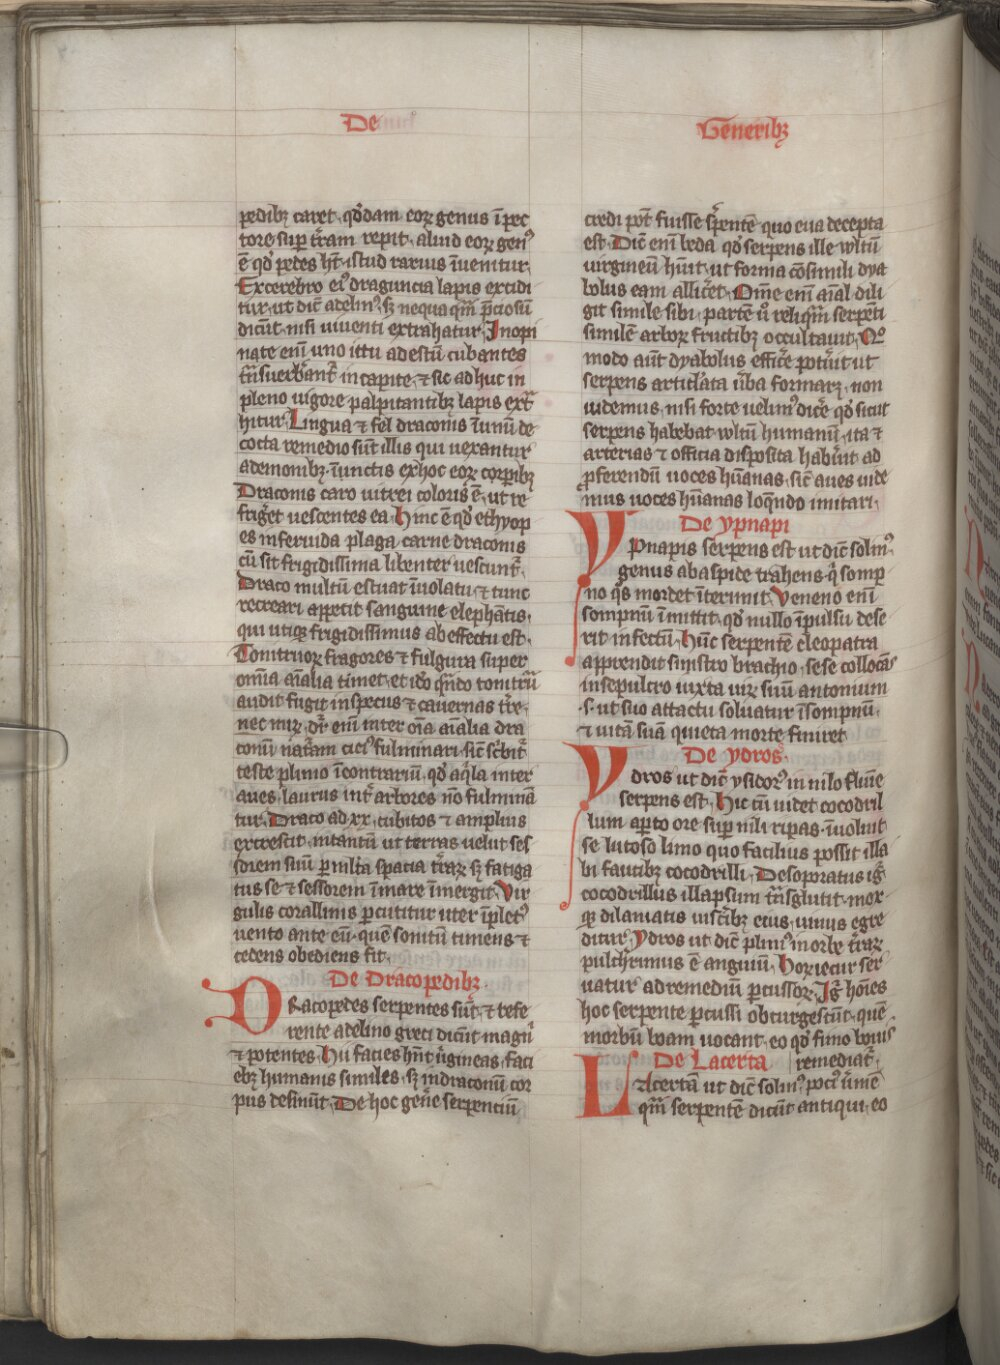 De
Generibꝫ
pedibꝫ caret. qd̓dam eoꝝ genus ī pec
tore sup̱ tr̄am repit. aliud eoꝝ genꝰ
ē qd̓ pedes hn̄t. istud rarius īuenitur.
Ex cerebro eiꝰ draguncia lapis excidi
tur. ut dic̄ adelinꝰ. sꝫ nequaqm̄ p̄ciosū
dicūt. nisi uiuenti extrahatur. Inopi
nate enī uno ictu ad estū cubantes
tn̄suerb̓ant̄ in capite. ⁊ sic adhuc in
pleno uigore palpitantibꝫ lapis ext̄
hitur. Lingua ⁊ fel draconis ī uinū de
cocta remedio sūt illis qui uexantur
a demonibꝫ. īunctis ex hoc eoꝝ corp̱ibꝫ
Draconis caro uitrei coloris ē. ut re
friḡet uescentes ea. Hinc ē qd̓ ethyop
es in feruida plaga carne draconis
cū sit frigidissima libenter uescunt̄.
Draco multū estuat ī uolatu. ⁊ tunc
recreari appetit sanguine elephātis.
qui utiqꝫ frigidissimus ab effectu est.
Tonitruoꝝ fragores ⁊ fulgura super
om̄ia aīalia timet. et id̓o qn̄do tonitrū
audit fugit in specus ⁊ cauernas tr̄e.
nec miꝝ. dr̄ enī inter oīa aīalia dra
conū nat̄am ciciꝰ fulminari. sic̄ sc̓bit̄
teste plinio ī contrariū. qd̓ aq̓la inter
aues. laurus int̄ arbores nō fulminā
tur. Draco ad xx. cubitos ⁊ amplius
excrescit. intantū ut terras uelut ses
sorem suū p̱ multa spacia tr̄aꝝ. sꝫ fatiga
tus se ⁊ sessorem ī mare īmergit. Vir
gulis corallinis p̱cutitur uter īpletꝰ
uento ante eū. quē sonitū timens ⁊
cedens obediens fit.
De Dracopedibꝫ.
DRacopedes serpentes sūt. ⁊ refe
rente adelino greci dicūt magn̄
⁊ potentes. Hii facies hn̄t ūgineas. faci
ebꝫ humanis similes. sꝫ in draconū cor
pus desinūt. De hoc geñe serpenciū
credi pōt fuisse sp̄entē quo eua decepta
est. Dic̄ enī beda qd̓ serpens ille wltū
uirgineū hūit. ut forma cōsimili dya
bolus eam allic̓et. Om̄e enī aīal dili
git simile sibi. partē ū reliqm̄ serpēti
similē arboꝝ fructibꝫ occultauit. Quo
modo aūt dyabolus effic̓e pot̓uit ut
serpens artic̓lata ūba formaret. non
uidemus. nisi forte uelimꝰ dic̓e qd̓ sicut
serpens habebat wltū humanū. ita ⁊
arterias ⁊ officia disposita hab̓uit ad
ꝓferendū uoces hūanas. sic̄ aues uide
mus uoces hūanas loq̄ndo imitari.
De ypnapi
YPnapis serpens est ut dic̄ solinꝰ.
genus ab aspide trahens. q̓ somp
no q̓s mordet īterimit. Veneno enī
sompnū īmittit. qd̓ nullo īpulsu dese
rit infectū. Hūc serpentē cleopatra
apprendit sinistro brachio. sese collocāˢ
in sepulcro iuxta uiꝝ suū antonium
.s. ut suo attactu soluatur ī sompnū.
⁊ uitā suā quieta morte finiret
De ydros.
YDros ut dic̄ ysidorꝰ in nilo fluīe
serpens est. Hic cū uidet cocodril
lum ap̱to ore sup̱ nili ripas. īuoluit
se lutoso limo quo facilius possit illa
bi faucibꝫ cocodrilli. Desoporatus igͥ
cocodrillus illapsum tn̄sglutit. mox
qꝫ dilaniatis uisc̓ibꝫ eius. uiuus egre
ditur. Ydros ut dic̄ pliniꝰ in orbe tr̄aꝝ
pulch̓rimus ē anguiū. Hoꝝ iecur ser
uatur ad remediū p̱cussoꝝ. Igͥ hoīes
hoc serpente p̱cussi obturgescūt. quē
morbū boam uocant. eo qd̓ fimo bouis
remediat̄.
De Lacerta
LAcertā ut dic̄ solinꝰ. pociꝰ ūmē
qm̄ serpentē dicūt antiqui. eo